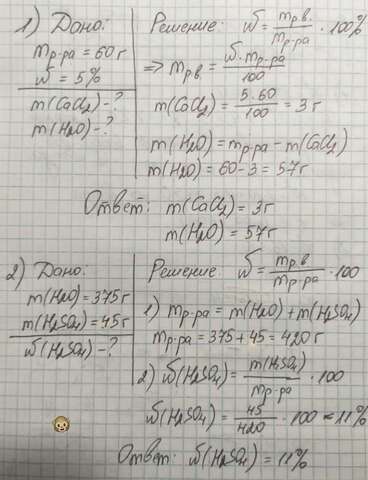 1) Дано:
mр-ра = 60 г
ω = 5%
m(CaCl2) - ?
m(H2O) - ?
Решение: ω = mр.в. / mр-ра · 100%
=> mрв = ω · mр-ра / 100
m(CaCl2) = 5 · 60 / 100 = 3 г
m(H2O) = mр-ра - m(CaCl2)
m(H2O) = 60 - 3 = 57 г
Ответ: m(CaCl2) = 3 г
m(H2O) = 57 г
2) Дано:
m(H2O) = 375 г
m(H2SO4) = 45 г
ω(H2SO4) - ?
Решение ω = mрв / mр-ра · 100
1) mр-ра = m(H2O) + m(H2SO4)
mр-ра = 375 + 45 = 420 г
2) ω(H2SO4) = m(H2SO4) / mр-ра · 100
ω(H2SO4) = 45 / 420 · 100 ≈ 11%
Ответ: ω(H2SO4) = 11%